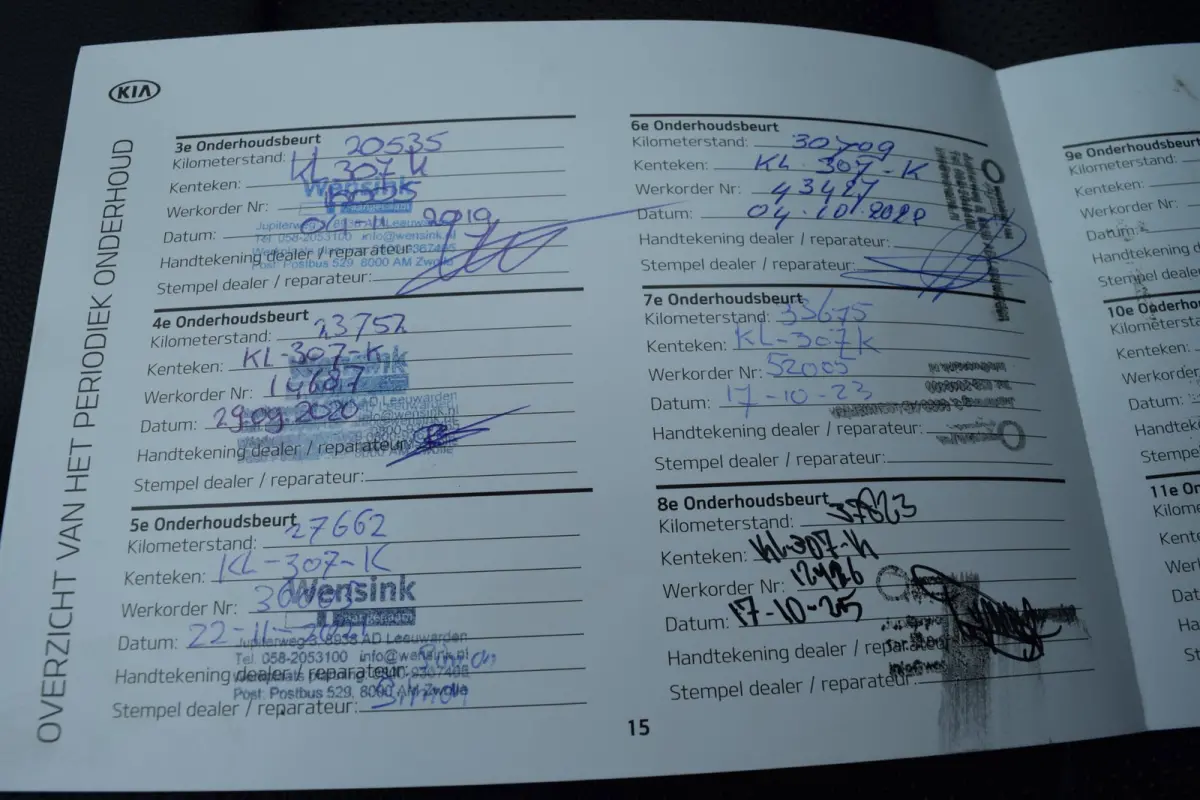 KIA
OVERZICHT VAN HET PERIODIEK ONDERHOUD
3e Onderhoudsbeurt
Kilometerstand: 20535
Kenteken: KL 307 K
Werkorder Nr:
Datum: 2019
Handtekening dealer / reparateur:
Stempel dealer / reparateur:
Wensink
Tel. 058-2053100 info@wensink.nl
Post: Postbus 529, 8000 AM Zwolle
4e Onderhoudsbeurt
Kilometerstand: 23752
Kenteken: KL-307-K
Werkorder Nr: 14687
Datum: 29.09.2020
Handtekening dealer / reparateur:
Stempel dealer / reparateur:
Wensink
AD Leeuwarden
info@wensink.nl
5e Onderhoudsbeurt
Kilometerstand: 27662
Kenteken: KL-307-K
Werkorder Nr:
Datum: 22-11-2021
Handtekening dealer / reparateur:
Stempel dealer / reparateur:
Wensink
Jupiterweg 8938 AD Leeuwarden
Tel. 058-2053100 info@wensink.nl
Post: Postbus 529, 8000 AM Zwolle
6e Onderhoudsbeurt
Kilometerstand: 30709
Kenteken: KL-307-K
Werkorder Nr: 43427
Datum: 04.10.2022
Handtekening dealer / reparateur:
Stempel dealer / reparateur:
7e Onderhoudsbeurt
Kilometerstand: 33675
Kenteken: KL-307K
Werkorder Nr: 52005
Datum: 17-10-23
Handtekening dealer / reparateur:
Stempel dealer / reparateur:
8e Onderhoudsbeurt
Kilometerstand: 37823
Kenteken: KL-307-K
Werkorder Nr: 12426
Datum: 17-10-25
Handtekening dealer / reparateur:
Stempel dealer / reparateur:
15
9e Onderhoudsbeurt
Kilometerstand:
Kenteken:
Werkorder Nr:
Datum:
Handtekening
Stempel dealer
10e Onderho
Kilometersta
Kenteken:
Werkorder
Datum:
Handteke
Stempel
11e On
Kilome
Kente
Wer
Dat
Ha
St